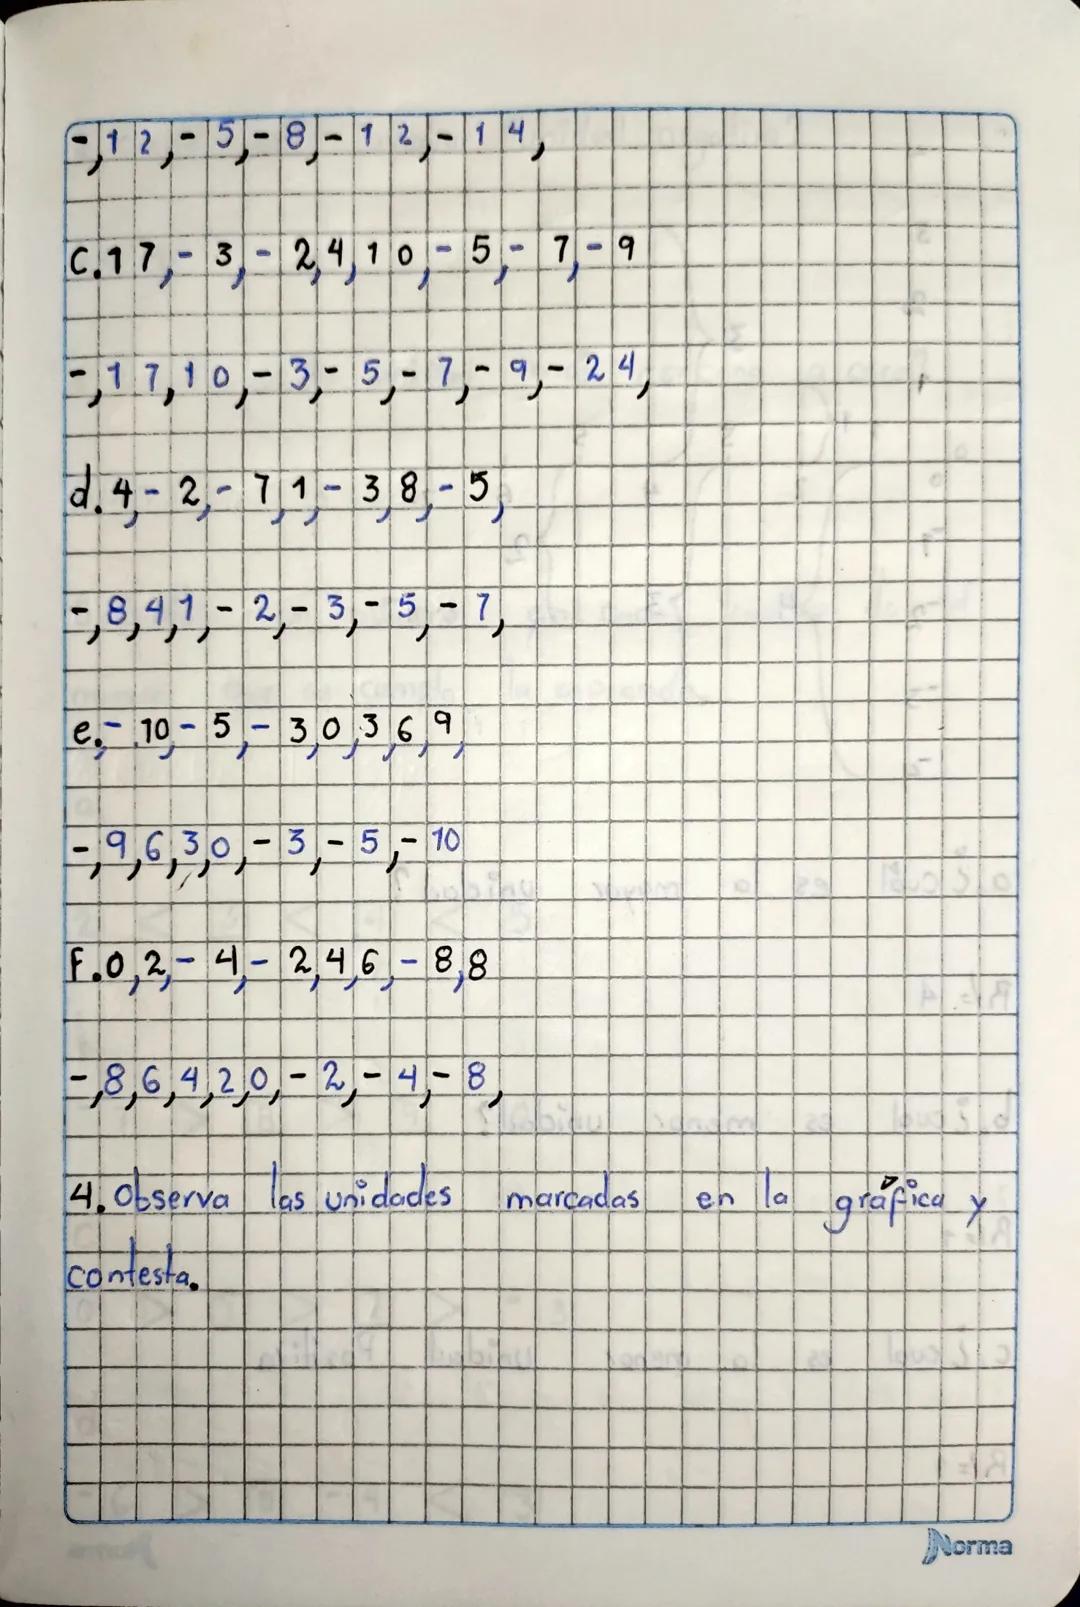 -,12,-5,-8,-12,-14,
c.17,-3,-24,10,-5,-7,-9
-,17,10,-3,-5,-7,-9,-24,
d.4,-2,-7,1,-3,8,-5,
-,8,4,1,-2,-3,-5,-7,
e.-10,-5,-3,0,3,6,9,
-,9,6,3,0,-3,-5,-10
F.0,2,-4,-2,4,6,-8,8
-,8,6,4,2,0,-2,-4,-8,
4. Observa las unidades marcadas en la gráfica y
contesta.
Norma